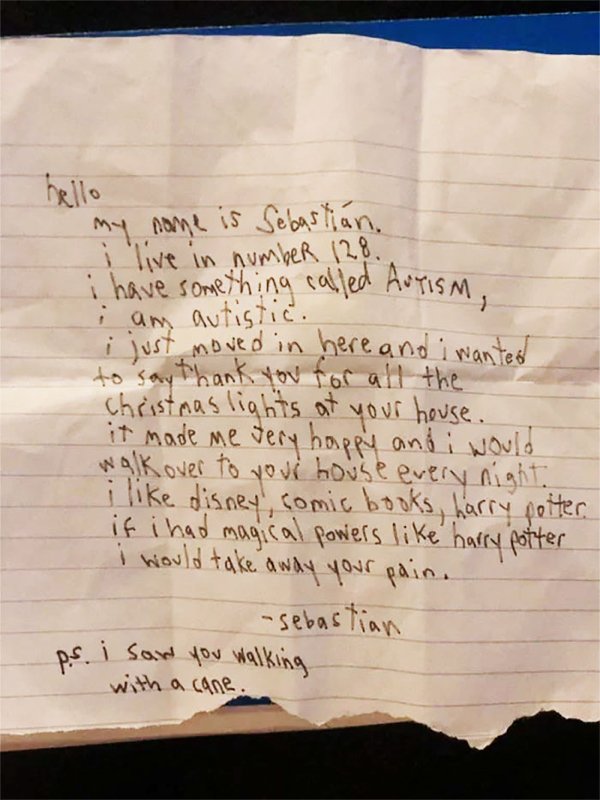 hello
my name is Sebastián.
i live in number 128.
i have something called AUTISM,
i am autistic.
i just moved in here and i wanted
to say thank you for all the
christmas lights at your house.
it made me very happy and i would
walk over to your house every night.
i like disney, comic books, harry potter.
if i had magical powers like harry potter
i would take away your pain.
-sebastian
p.s. i saw you walking
with a cane.